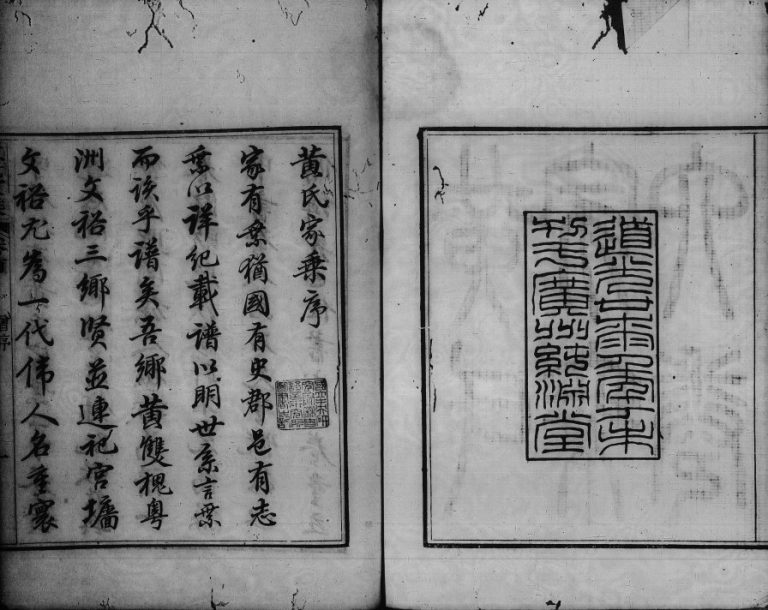 道光廿柒年丁未
刊于廣州純淵堂
黃氏家乘序
家有乘猶國有史郡邑有志
乘以詳紀載譜以明世系言乘
而該乎譜矣吾鄉黃雙槐粵
洲文裕三鄉賢並連祀宮墻
文裕尤為一代偉人名重寰